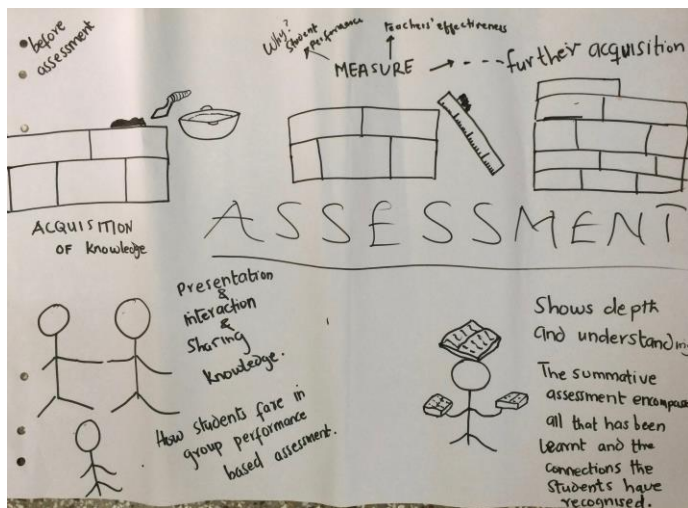 before
assessment
Why?
Student
performance
teachers' effectiveness
MEASURE
further acquisition
ACQUISITION
OF Knowledge
ASSESSMENT
Presentation
&
interaction
&
Sharing
knowledge.
How students fare in
group performance
based assessment.
Shows depth
and understanding
The summative
assessment encompass
all that has been
learnt and the
connections the
Students have
recognised.